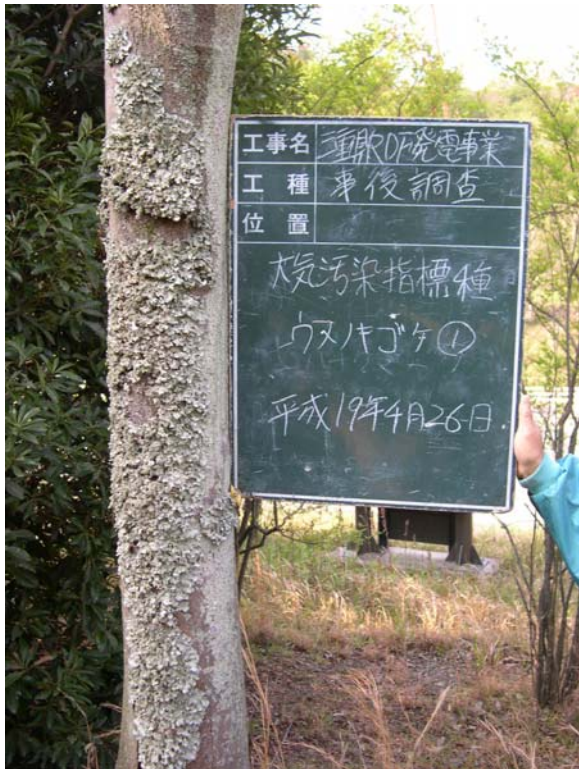 工事名 三重県RDF発電事業
工種 事後調査
位置
大気汚染指標種
ウメノキゴケ①
平成19年4月26日